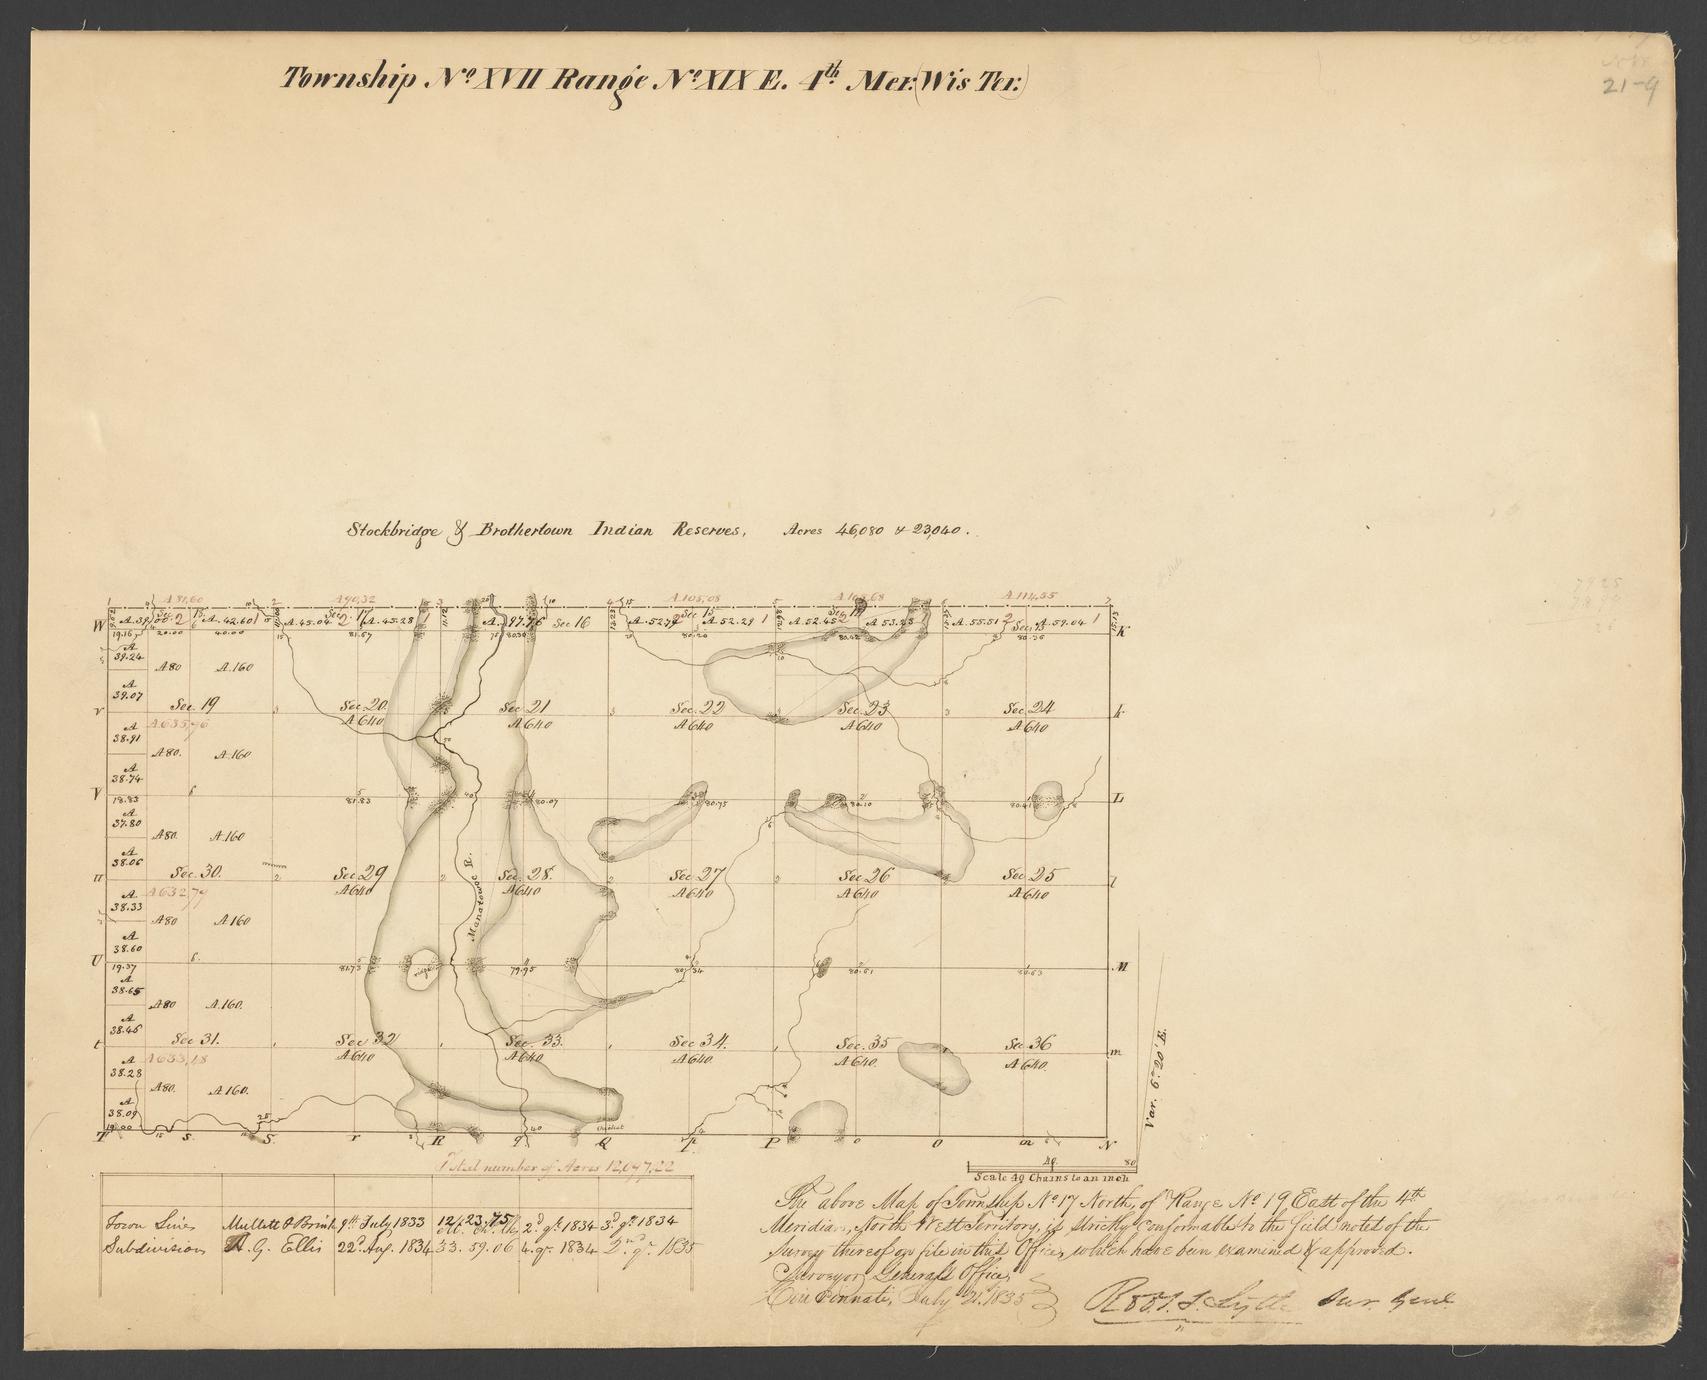 21-9
Township No XVII Range No XIX E. 4th Mer. (Wis Ter.)
Stockbridge & Brothertown Indian Reserves, Acres 46,080 & 23,040.
1 A 81,60 2 A 90,32 3 4 A.105,08 5 6 A 114,55 7
W Sec 17 A. 42.60 A.45.04 A.45.28 A. 97.76 Sec 16 A. 52.79 Sec 15 A 52.29 A. 52.45 A 53.28 A.55.51 A 59.04 K
19.16 20.00 40.00 81.67 80.30 80.20 80.42 80.36
A 39.24 A80 A.160
A 39.07
Sec. 19 Sec. 20 Sec. 21 Sec. 22 Sec. 23 Sec. 24
A 635,96 A 640 A 640 A 640 A 640 A 640
A 38.91 A80. A.160
A 38.74
V 18.83 81.83 80.07 80.75 80.10 L
A 37.80 A80. A.160
A 38.06
Sec. 30. Sec. 29 Sec. 28. Sec. 27 Sec 26 Sec 25
A 632,79 A 640 A 640 A 640 A 640 A 640
A 38.33 A80 A.160
Manatowoc R.
A 38.60
U 19.37 81.73 ridge 79.95 80.51 80.63 M
A 38.65 A80 A.160.
A 38.46
Sec 31. Sec 32 Sec. 33. Sec 34. Sec. 35 Sec 36
A 633,18 A 640 A 640 A 640. A 640. A 640.
A 38.28 A80. A.160.
A 38.09
19.00
T S. S. r R q Q p. P o O n N
Var. 6°.20' E.
Total number of Acres 12,097,22
40 80
Scale 40 Chains to an inch
Town Lines Mullett & Brink 9th July 1833 12. 23. 75 2d qr. 1834 3d qr. 1834
Subdivision A. G. Ellis 22d Aug. 1834 33. 59. 06 4. qr. 1834 2nd qr. 1835
The above Map of Township No 17 North, of Range No 19 East of the 4th
Meridian, North West Territory, is strictly conformable to the field notes of the
survey thereof on file in this Office, which have been examined & approved.
Surveyor General's Office
Cincinnati, July 21. 1835
Robt. T. Lytle Sur. Genl.